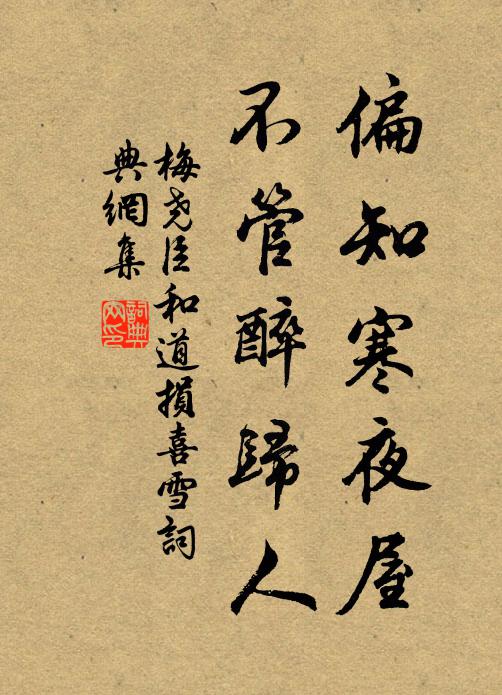 偏知寒夜屋
不管醉歸人
梅尧臣和道損喜雪詞
典網集
詞典
網印